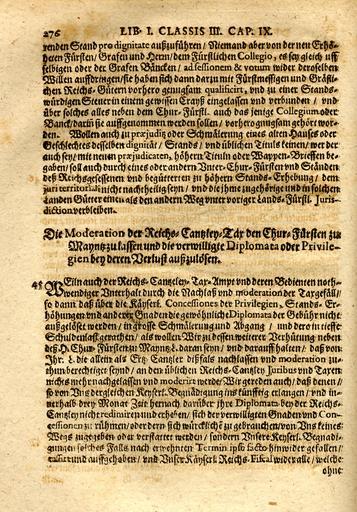 276 LIB. I. CLASSIS III. CAP. IX.
renden Stand pro dignitate außzuführen / Niemand aber von der neu Erhö-
heten Fürsten / Grafen und Herrn / dem Fürstlichen Collegio, es sey gleich uff
selbigen oder der Grafen Bäncken / ad sessionem & votum wider deroselben
Willen auffdringen / sie haben sich dann darzu mit Fürstmessigen und Gräfli-
chen Reichs-Gütern vorhero genugsam qualificirt, und zu einer Stands-
würdigen Steuer in einem gewissen Crayß eingelassen und verbunden / und
über solches alles neben dem Chur-Fürstl. auch das jenige Collegium oder
Banck / darin sie auffgenommen werden sollen / vorhero gnugsam gehört wor-
den. Wollen auch zu præjudiz oder Schmälerung eines alten Hauses oder
Geschlechtes desselben dignität / Stands / und üblichen Tituls keinen / wer der
auch sey / mit neuen prædicaten, höhern Tituln oder Wappen-Brieffen be-
gaben / soll auch durch eines oder andern Unter-Chur-Fürsten und Ständen
deß Reichs gesessenen und begüterten zu höhern Stands-Erhebung / dem
juri territoriali nicht nachtheilig seyn / und die ihme zugehörige und in solchen
Landen Güter einen als den andern Weg unter voriger Lands-Fürstl. Juris-
diction verbleiben.
Die Moderation der Reichs-Cantzley-Tax den Chur-Fürsten zu
Mayntz zu lassen und die verwilligte Diplomata oder Privile-
gien bey deren Verlust außzulösen.
45 Weiln auch der Reichs-Cantzeley-Tax-Ampt und deren Bedienten noth-
wendiger Unterhalt durch die Nachlaß und moderation der Taxgefäll /
so dann daß über die Käyserl. Concessiones der Privilegien, Stands-Er-
höhungen und anderer Gnaden die gewöhnliche Diplomata der Gebühr nicht
außgelöset werden / in grosse Schmälerung und Abgang / und dero in tieffe
Schuldenlast gerathen / als wollen Wir zu dessen weiterer Verhütung neben
deß H. Chur-Fürsten zu Mayntz L. daran seyn / und darauff halten / daß von
Ihr L. die allein als Ertz-Cantzler dißfals nachlassen und moderation zu-
thun berechtiget seynd / an den üblichen Reichs-Cantzley Juribus und Taxen
nichts mehr nachgelassen und moderirt werde / Wir gereden auch / daß denen /
so von Uns dergleichen Keyserl. Begnadigung ins künftig erlangen / und in-
nerhalb drey Monat Zeit hernach darüber ihre Diplomata bey der Reichs-
Cantzley nicht redimiren und erheben / sich der verwilligten Gnaden und Con-
cessionen zu rühmen / oder dern sich würcklich zu gebrauchen / von Uns keines
Wegs zugegeben oder verstattet werden / sondern Unsere Keyserl. Begnadi-
gungen solches Falls nach erwehnten Termin ipso facto hinwider gefallen /
cassirt und auffgehaben / und Unser Käyserl. Reichs-Fiscal wider alle / welche
ohne